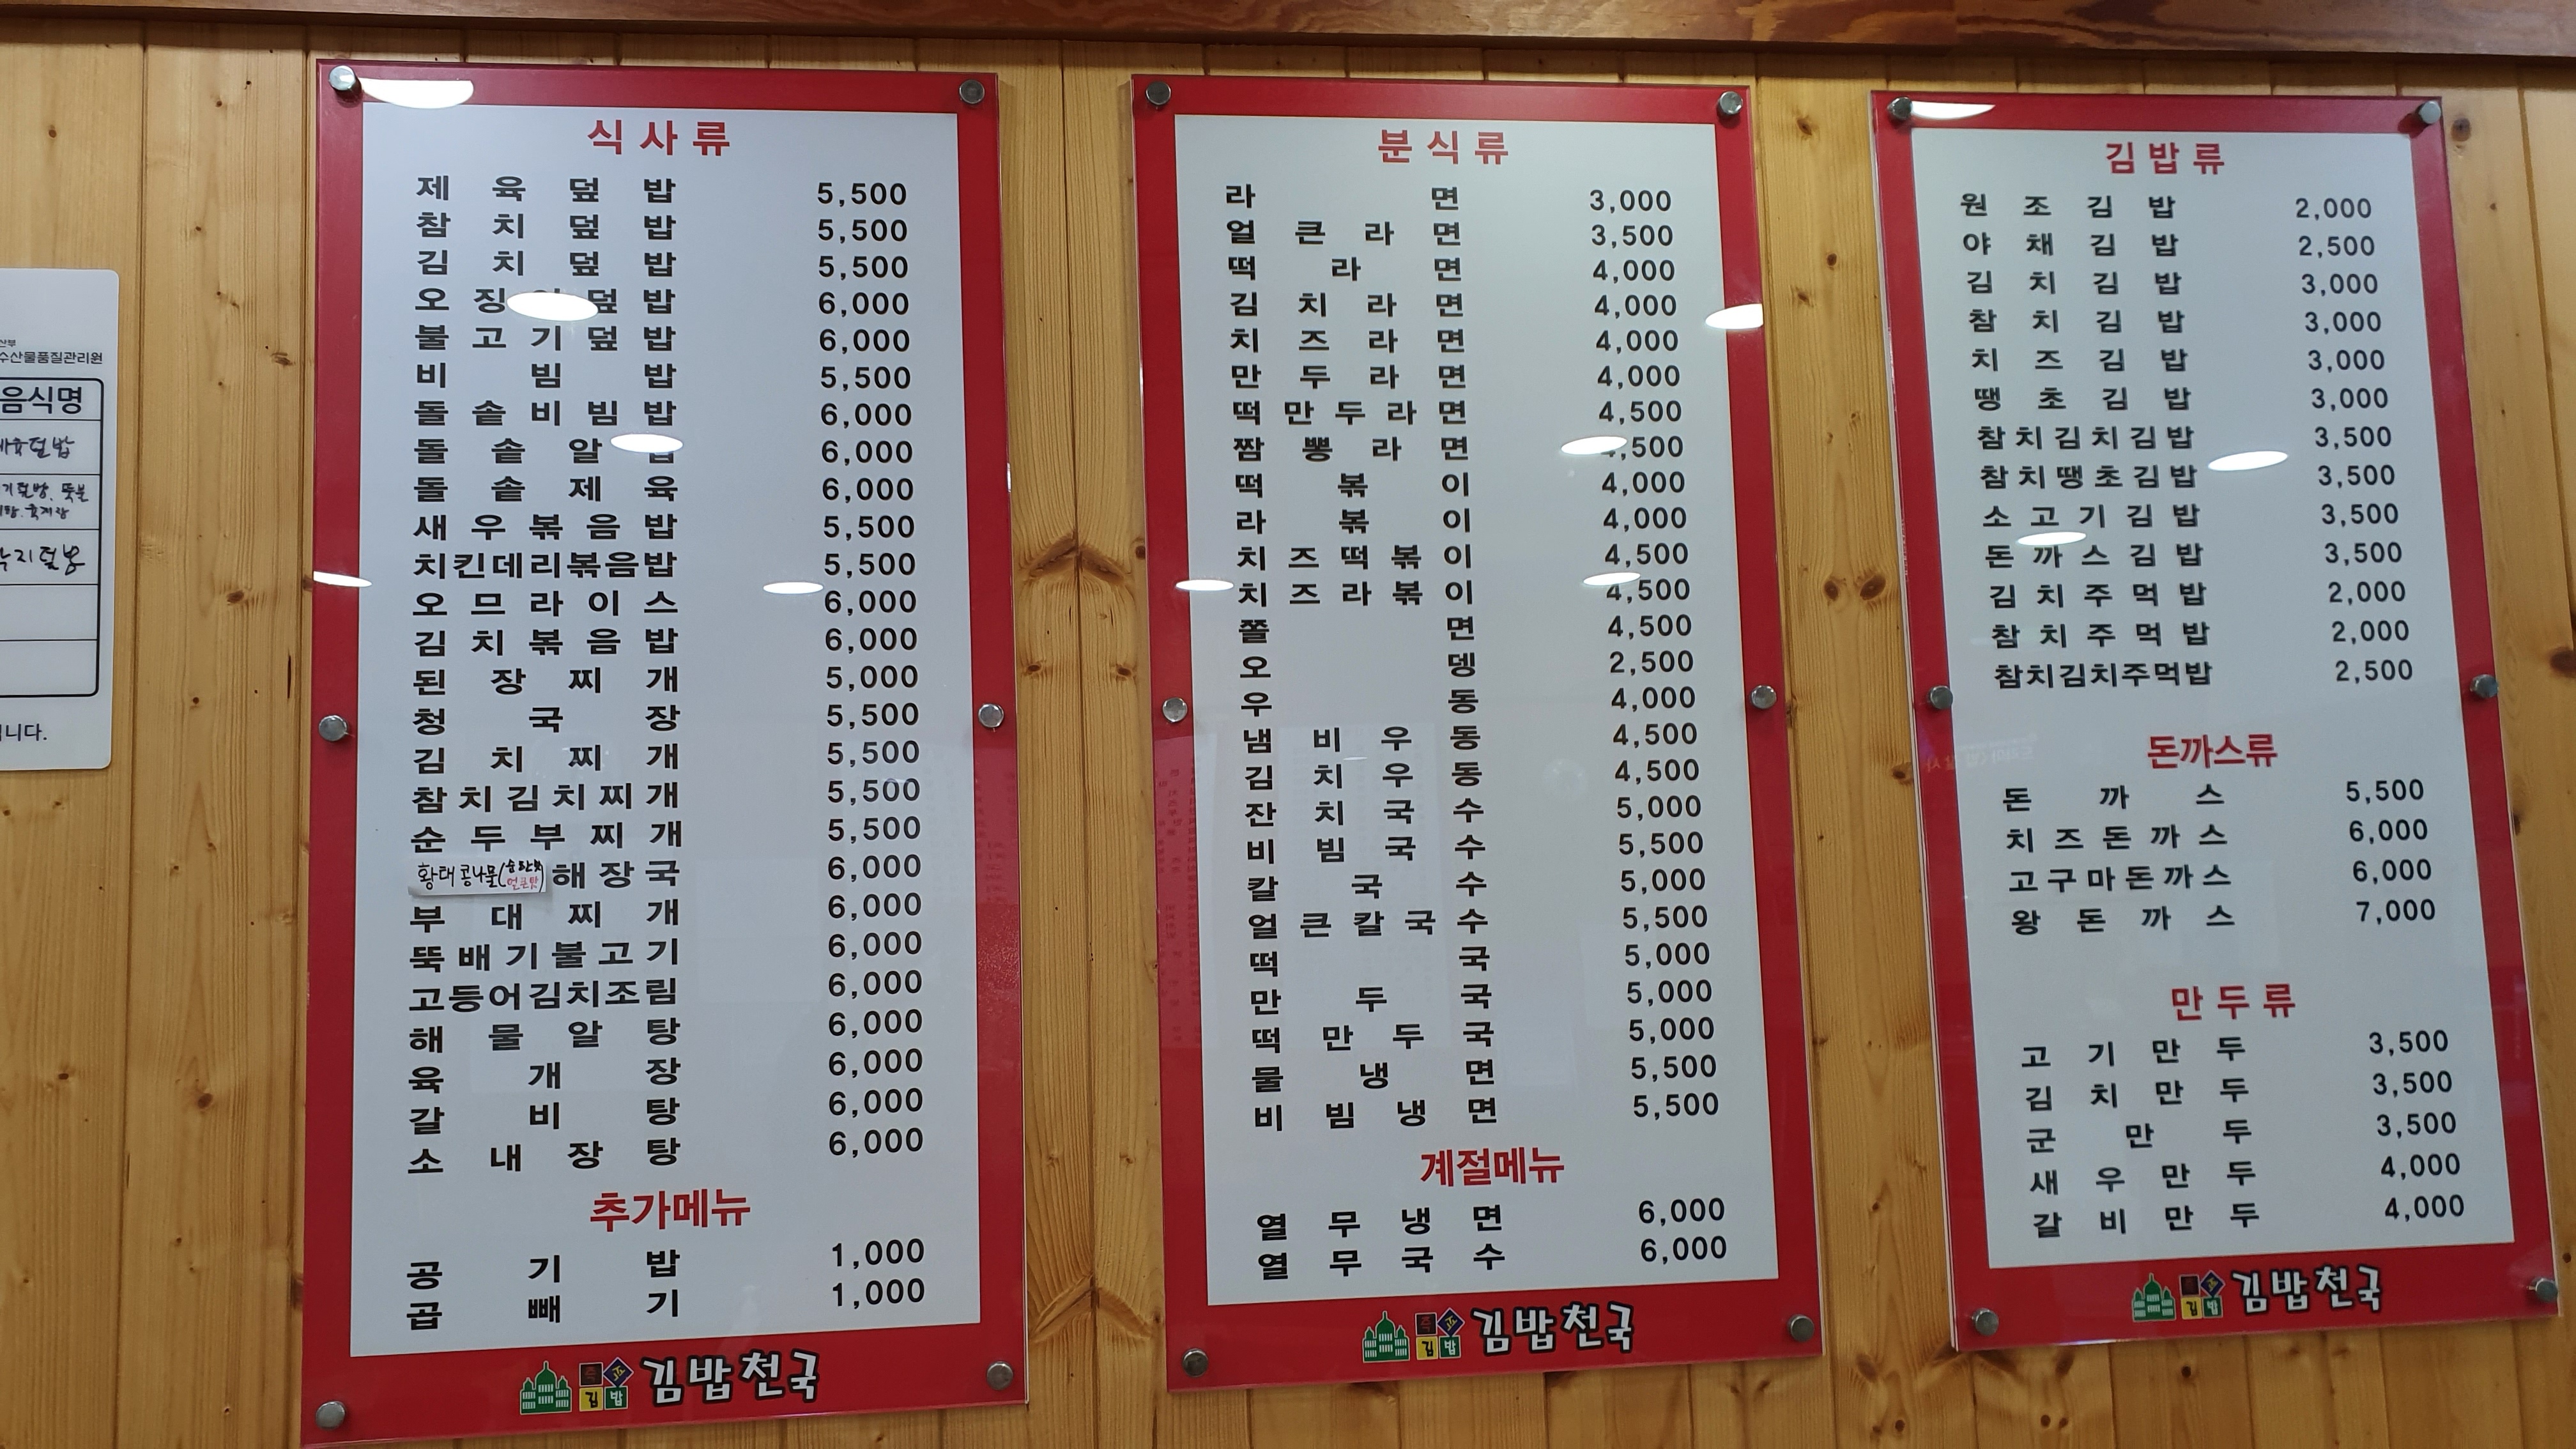 산부
수산물품질관리원
음식명
육덮밥
니다.
식사류
제육덮밥 5,500
참치덮밥 5,500
김치덮밥 5,500
오징 덮밥 6,000
불고기덮밥 6,000
비빔밥 5,500
돌솥비빔밥 6,000
돌솥알밥 6,000
돌솥제육 6,000
새우볶음밥 5,500
치킨데리볶음밥 5,500
오므라이스 6,000
김치볶음밥 6,000
된장찌개 5,000
청국장 5,500
김치찌개 5,500
참치김치찌개 5,500
순두부찌개 5,500
황태콩나물(순한맛 얼큰맛)해장국 6,000
부대찌개 6,000
뚝배기불고기 6,000
고등어김치조림 6,000
해물알탕 6,000
육개장 6,000
갈비탕 6,000
소내장탕 6,000
추가메뉴
공기밥 1,000
곱빼기 1,000
즉석김밥 김밥천국
분식류
라면 3,000
얼큰라면 3,500
떡라면 4,000
김치라면 4,000
치즈라면 4,000
만두라면 4,000
떡만두라면 4,500
짬뽕라면 4,500
떡볶이 4,000
라볶이 4,000
치즈떡볶이 4,500
치즈라볶이 4,500
쫄면 4,500
오뎅 2,500
우동 4,000
냄비우동 4,500
김치우동 4,500
잔치국수 5,000
비빔국수 5,500
칼국수 5,000
얼큰칼국수 5,500
떡국 5,000
만두국 5,000
떡만두국 5,000
물냉면 5,500
비빔냉면 5,500
계절메뉴
열무냉면 6,000
열무국수 6,000
즉석김밥 김밥천국
김밥류
원조김밥 2,000
야채김밥 2,500
김치김밥 3,000
참치김밥 3,000
치즈김밥 3,000
땡초김밥 3,000
참치김치김밥 3,500
참치땡초김밥 3,500
소고기김밥 3,500
돈까스김밥 3,500
김치주먹밥 2,000
참치주먹밥 2,000
참치김치주먹밥 2,500
돈까스류
돈까스 5,500
치즈돈까스 6,000
고구마돈까스 6,000
왕돈까스 7,000
만두류
고기만두 3,500
김치만두 3,500
군만두 3,500
새우만두 4,000
갈비만두 4,000
즉석김밥 김밥천국